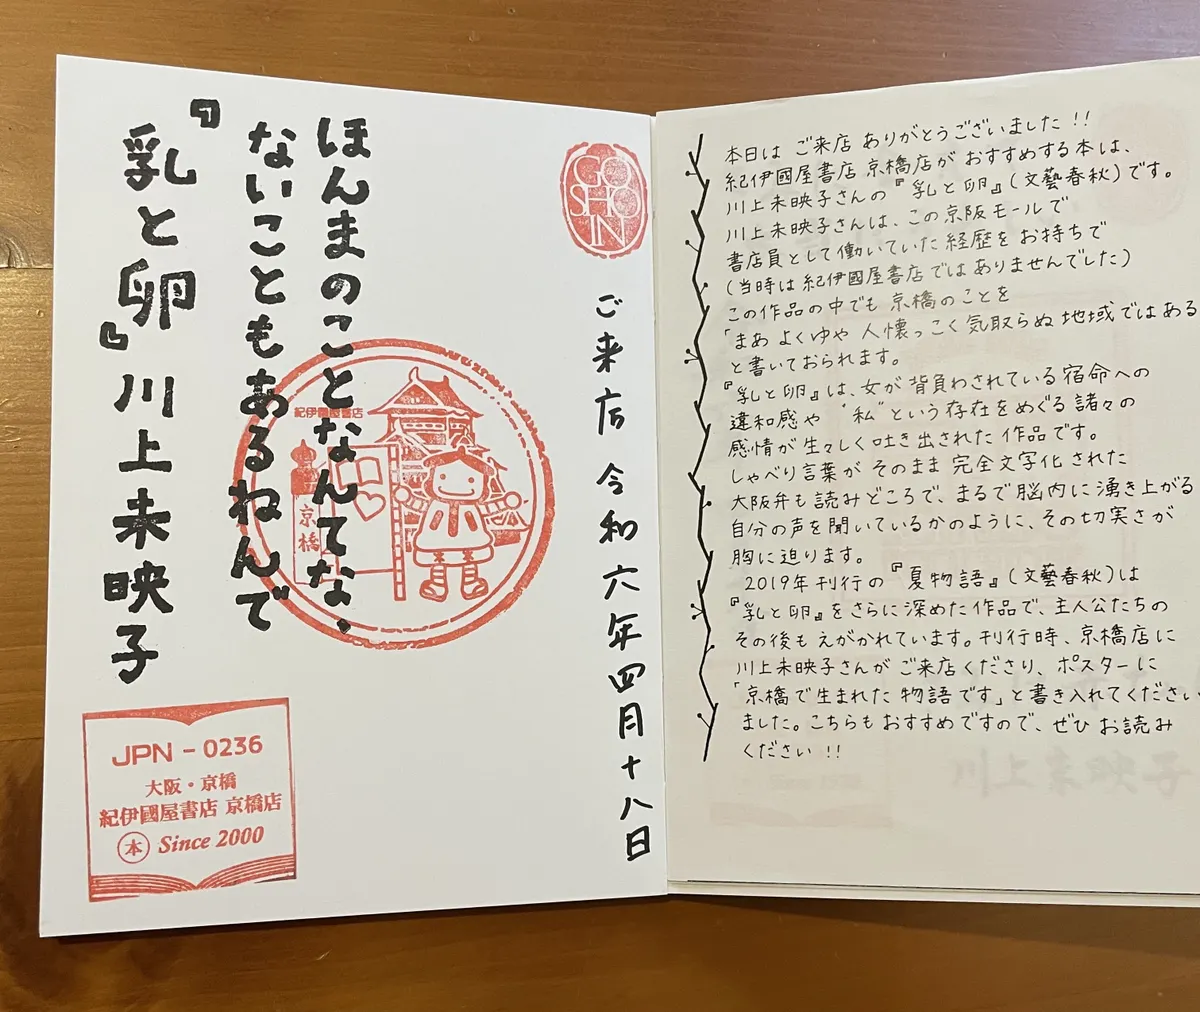 ほんまのことなんてな、
ないこともあるねんで
『乳と卵』川上未映子
GO
SHO
IN
ご来店 令和六年四月十八日
紀伊國屋書店
京橋
JPN-0236
大阪・京橋
紀伊國屋書店 京橋店
本 Since 2000
本日は ご来店 ありがとうございました!!
紀伊國屋書店 京橋店が おすすめする本は、
川上未映子さんの『乳と卵』(文藝春秋)です。
川上未映子さんは、この京阪モールで
書店員として働いていた経歴をお持ちで
(当時は紀伊國屋書店ではありませんでした)
この作品の中でも 京橋のことを
「まあ よくゆや 人懐っこく気取らぬ地域ではある
と書いておられます。
『乳と卵』は、女が背負わされている宿命への
違和感や "私"という存在をめぐる諸々の
感情が生々しく吐き出された作品です。
しゃべり言葉が そのまま 完全文字化された
大阪弁も読みどころで、まるで脳内に湧き上がる
自分の声を聞いているかのように、その切実さが
胸に迫ります。
2019年刊行の『夏物語』(文藝春秋)は
『乳と卵』をさらに深めた作品で、主人公たちの
その後もえがかれています。刊行時、京橋店に
川上未映子さんが ご来店くださり、ポスターに
「京橋で生まれた物語です」と書き入れてください
ました。こちらも おすすめですので、ぜひ お読み
ください!!